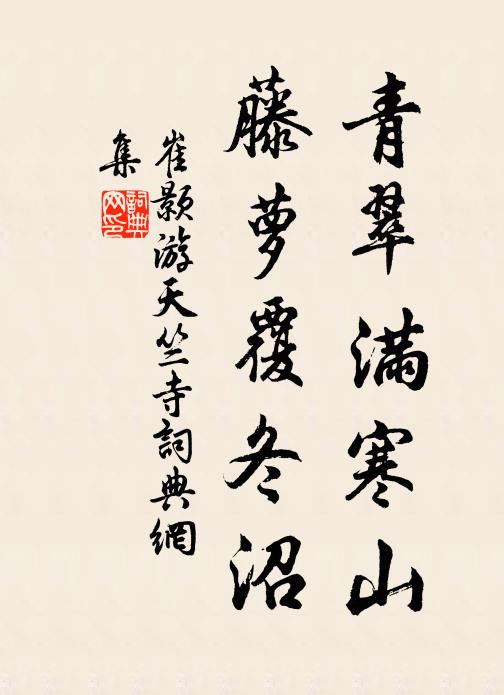 青翠满寒山
藤萝覆冬沼
崔颢游天竺寺詞典網
集
詞典
网印